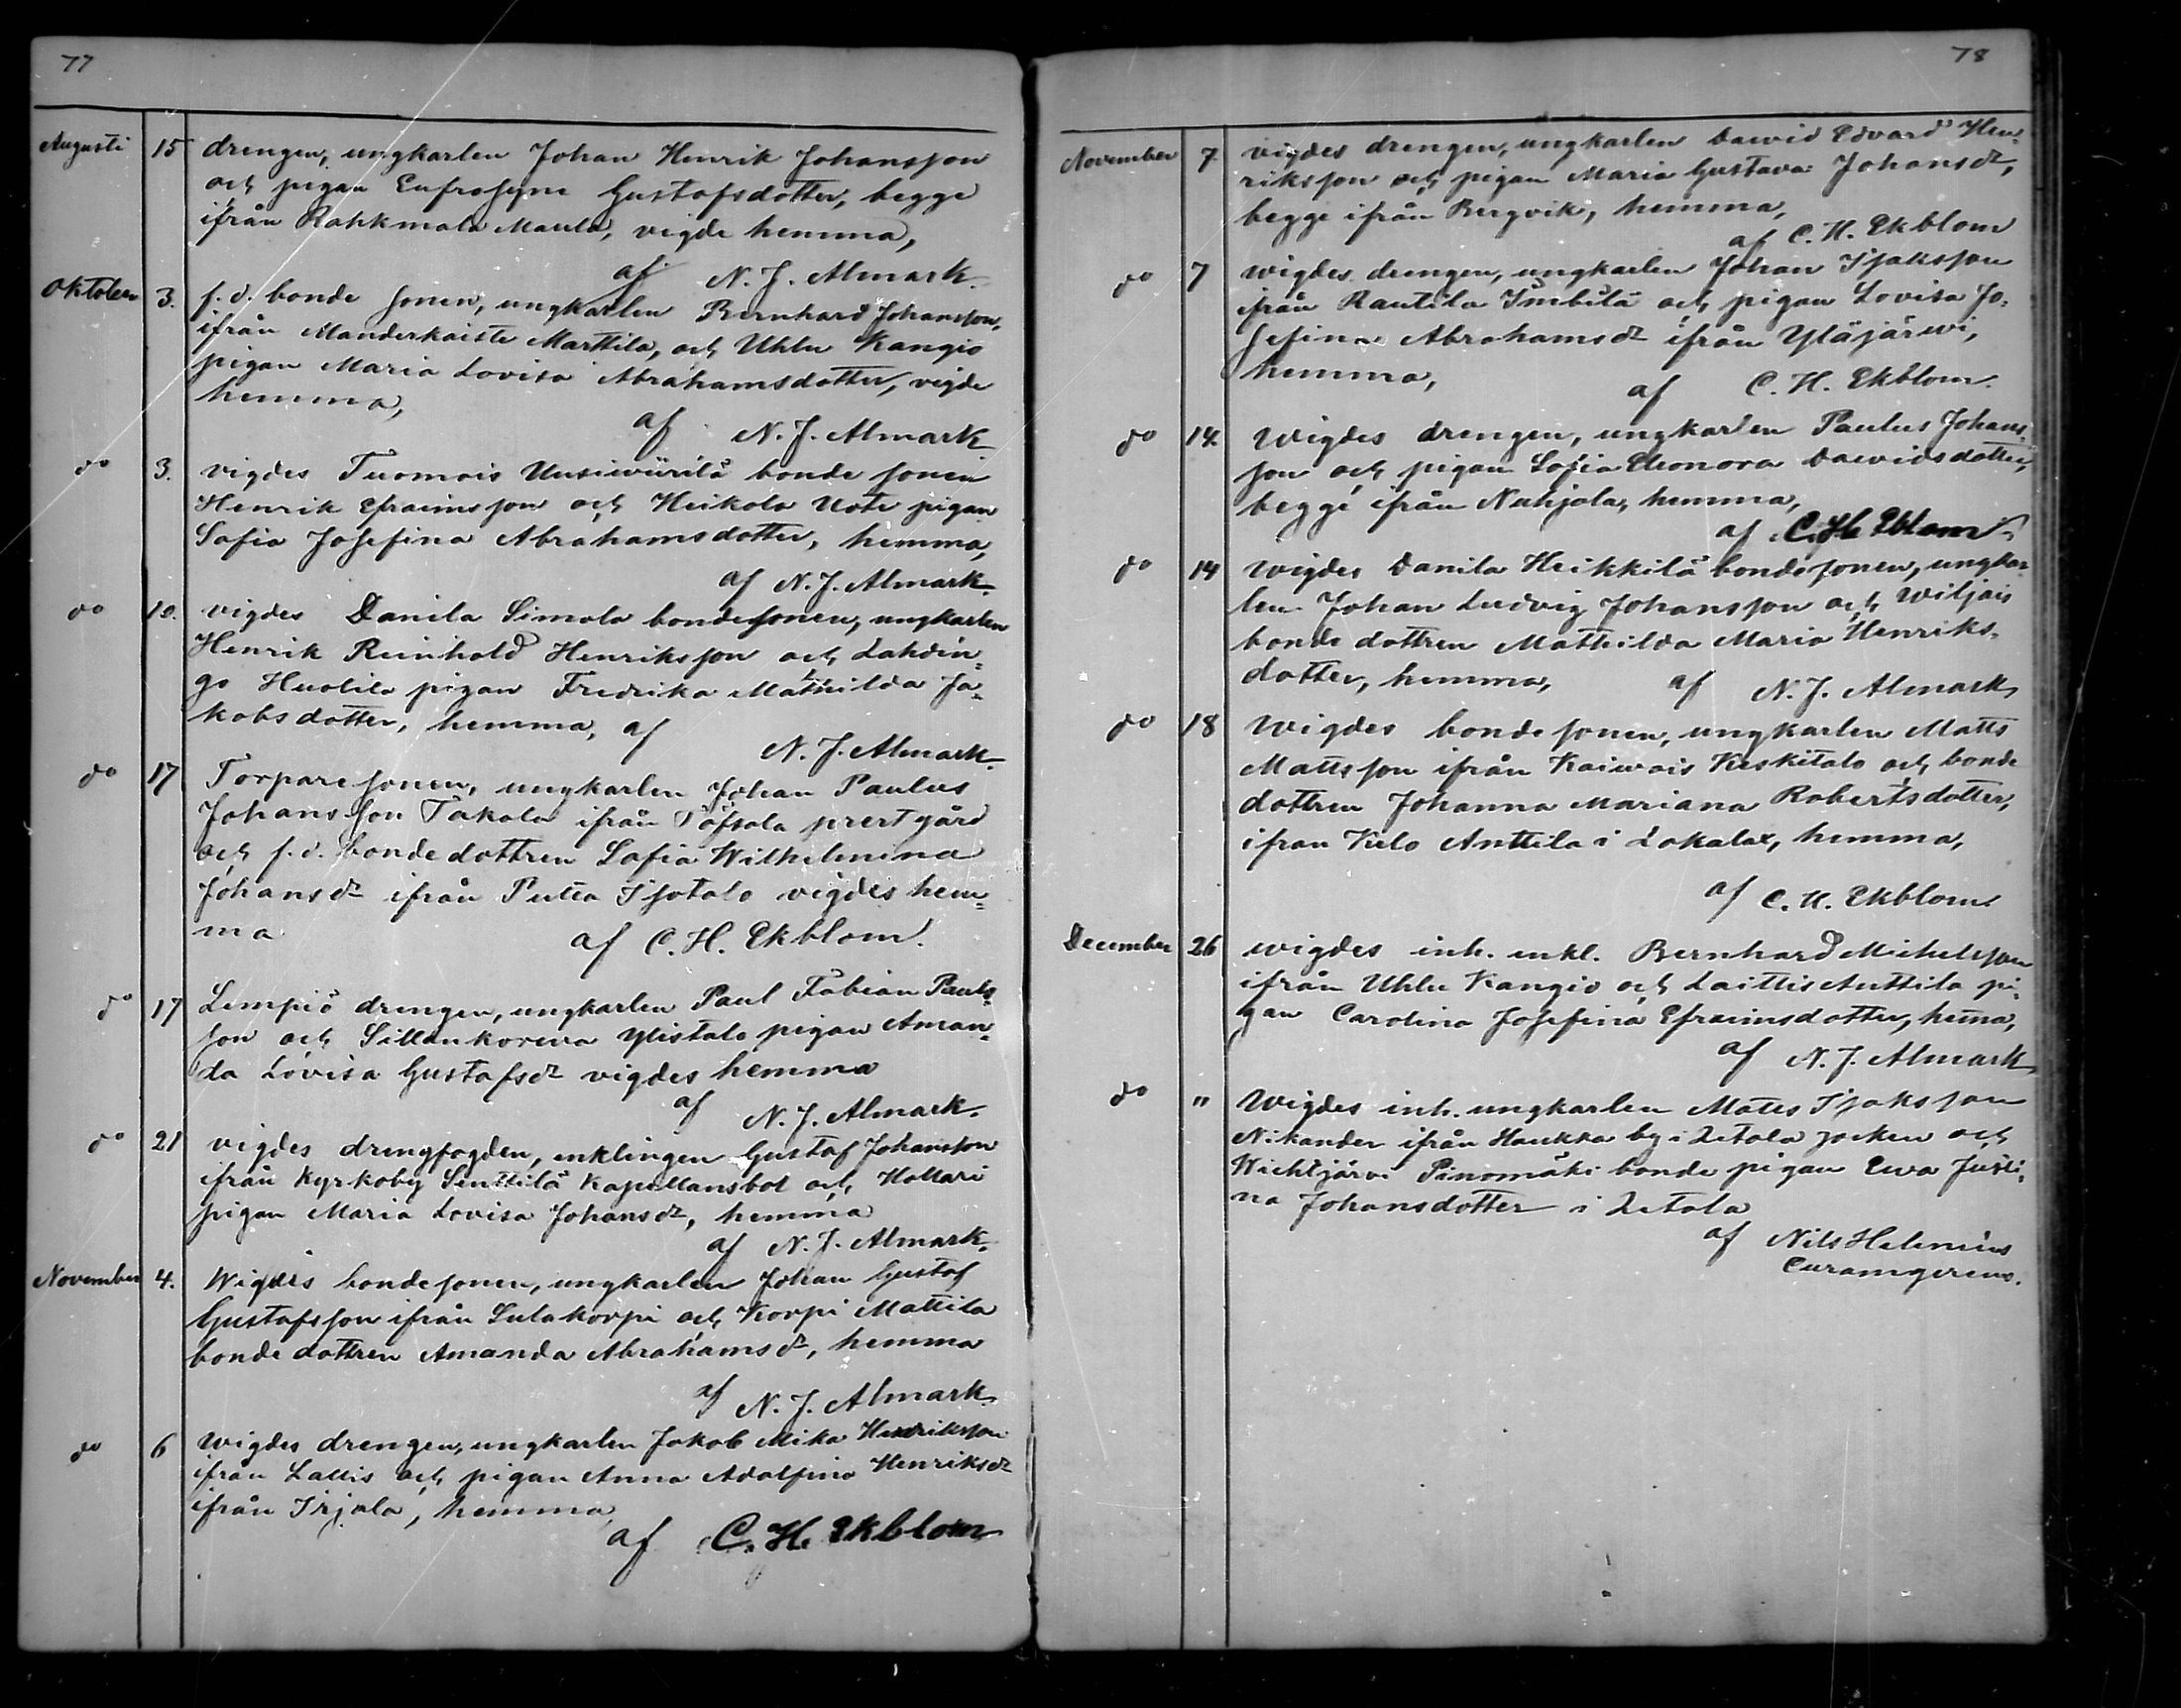 77
Augusti 15 drengen, ungkarlen Johan Henrik Johansson
och pigan Eufrosyne Gustafsdotter, begge
ifrån Rahkmala Maula, vigde hemma,
af N. J. Almark.
Oktober 3. f.d. bonde sonen, ungkarlen Bernhard Johansson,
ifrån Manderkaiste Marttila, och Uhlu Kangio
pigan Maria Lovisa Abrahamsdotter, vigde
hemma,
af N. J. Almark
do 3. vigdes Tuomois Uusiwürilä bonde sonen
Henrik Efraimsson och Heikola Uoti pigan
Sofia Josefina Abrahamsdotter, hemma,
af N. J. Almark.
do 10. vigdes Danila Simola bondesonen, ungkarlen
Henrik Reinhold Henriksson och Lahdin=
go Huolila pigan Fredrika Mathilda Ja=
kobsdotter, hemma, af
N. J. Almark.
do 17 Torparesonen, ungkarlen Johan Paulus
Johansson Takala ifrån Töfsala prestgård
och f.d. bondedottren Sofia Wilhelmina
Johansdr ifrån Putta Isotalo vigdes hem=
ma af C. H. Ekblom.
do 17 Lempiö drengen, ungkarlen Paul Fabian Pauls
son och Sillankorwa Ylistalo pigan Aman=
da Lovisa Gustafsdr vigdes hemma
af N. J. Almark.
do 21 vigdes drengfogden, enklingen Gustaf Johansson
ifrån Kyrkoby Senttilä Kapellansbol och Hollari
pigan Maria Lovisa Johansdr, hemma
af N. J. Almark.
November 4. Wigdes bondesonen, ungkarlen Johan Gustaf
Gustafsson ifrån Sulakorpi och Korpi Mattila
bonde dottren Amanda Abrahamsdr, hemma
af N. J. Almark.
do 6 Wigdes drengen, ungkarlen Jakob Mika Henriksson
ifrån Lallis och pigan Anna Adolfina Henriksdr
ifrån Irjala, hemma,
af C. H. Ekblom
78
November 7. vigdes drengen, ungkarlen Dawid Edvard Hen=
riksson och pigan Maria Gustava Johansdr,
begge ifrån Bergvik, hemma,
af C. H. Ekblom
do 7 wigdes drengen, ungkarlen Johan Isaksson
ifrån Rautila Imbilä och pigan Lovisa Jo=
sefina Abrahamsdr ifrån Yläjärwi,
hemma,
af C. H. Ekblom.
do 14. Wigdes drengen, ungkarlen Paulus Johans=
son och pigan Sofia Eleonora Dawidsdotter,
begge ifrån Nuhjala, hemma,
af C. H. Ekblom
do 14 Wigdes Danila Heikkilä bondesonen, ungkar=
len Johan Ludvig Johansson och Wiljais
bonde dottren Mathilda Maria Henriks=
dotter, hemma, af N. J. Almark
do 18 Wigdes bonde sonen, ungkarlen Matts
Mattsson ifrån Kaiwais Keskitalo och bonde
dottren Johanna Mariana Robertsdotter,
ifran Kelo Anttila i Lokalax, hemma,
af C. H. Ekblom
December 26 wigdes inh. enkl. Bernhard Michelsson
ifrån Uhlu Kangio och Laittis Anttila pi=
gan Carolina Josefina Efraimsdotter, hema,
af N. J. Almark
do " Wigdes inh. ungkarlen Matts Isaksson
Nikander ifrån Haukka by i Letala socken och
Wichtjärvi Pinomäki bonde pigan Ewa Justi=
na Johansdotter i Letala
af Nils Helenius
Curamgerens.